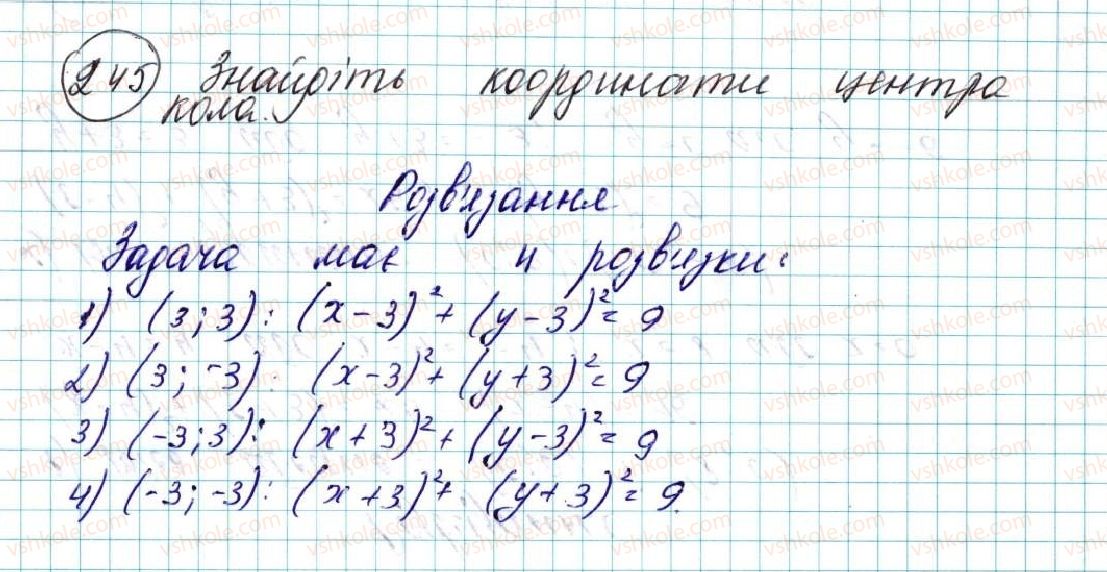 245 Знайдіть координати центра
кола.
Розв'язання
Задача має 4 розв'язки:
1) (3; 3): (x-3)²+ (y-3)²= 9
2) (3; -3): (x-3)²+ (y+3)²= 9
3) (-3; 3): (x+3)²+ (y-3)²= 9
4) (-3; -3): (x+3)²+ (y+3)²= 9.
vshkole.com